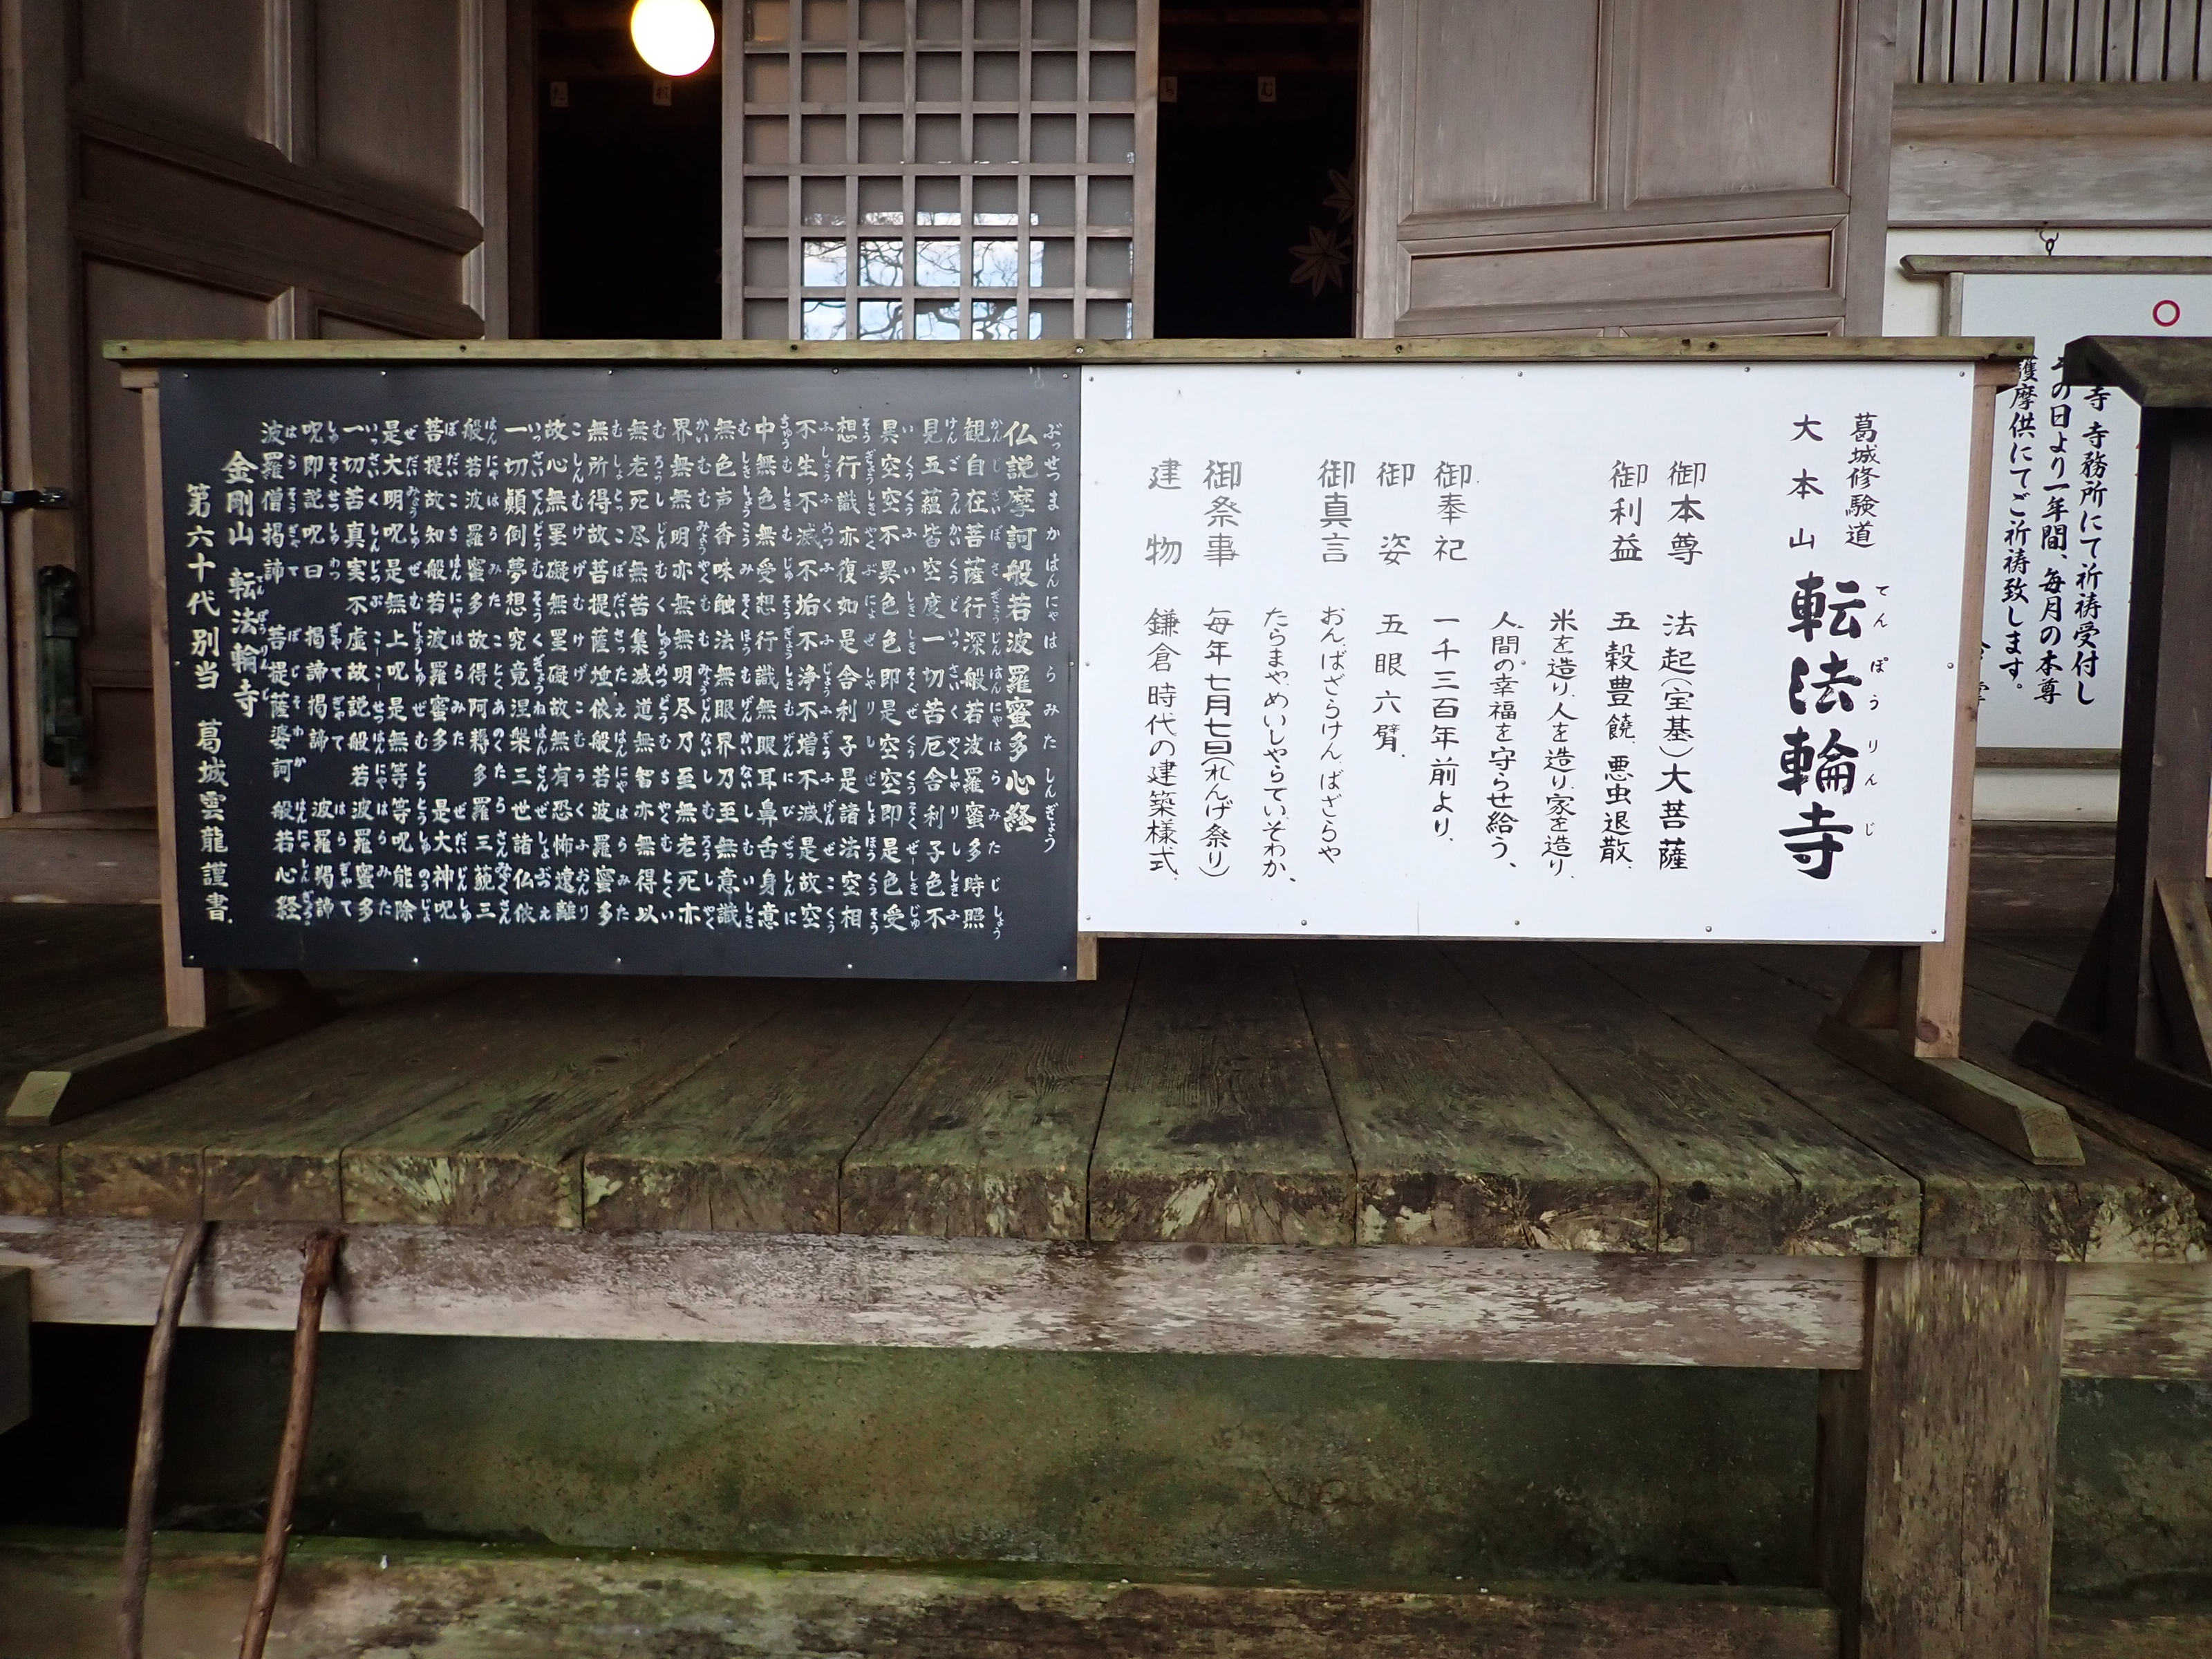 葛城修験道
大本山 転法輪寺
てんぽうりんじ
御本尊 法起(宝基)大菩薩
御利益 五穀豊饒、悪虫退散、
米を造り、人を造り、家を造り、
人間の幸福を守らせ給う、
御奉祀 一千三百年前より、
御姿 五眼六臂、
御真言 おんばざらけんばざらや
たらまやめいしやらていそわか、
御祭事 毎年七月七日(れんげ祭り)
建物 鎌倉時代の建築様式
ぶっせつまかはんにゃはらみたしんぎょう
仏説摩訶般若波羅蜜多心経
観自在菩薩行深般若波羅蜜多時照
見五蘊皆空度一切苦厄舎利子色不
異空空不異色色即是空空即是色受
想行識亦復如是舎利子是諸法空相
不生不滅不垢不浄不増不減是故空
中無色無受想行識無眼耳鼻舌身意
無色声香味触法無眼界乃至無意識
界無無明亦無無明尽乃至無老死亦
無老死尽無苦集滅道無智亦無得以
無所得故菩提薩埵依般若波羅蜜多
故心無罣礙無罣礙故無有恐怖遠離
一切顛倒夢想究竟涅槃三世諸仏依
般若波羅蜜多故得阿耨多羅三藐三
菩提故知般若波羅蜜多 是大神呪
是大明呪是無上呪是無等等呪能除
一切苦真実不虚故説般若波羅蜜多
呪即説呪曰 掲諦掲諦 波羅羯諦
波羅僧掲諦 菩提薩婆訶 般若心経
金剛山 転法輪寺
てんぽうりんじ
第六十代別当 葛城雲龍謹書
寺 寺務所にて祈祷受付し
の日より一年間、毎月の本尊
護摩供にてご祈祷致します。